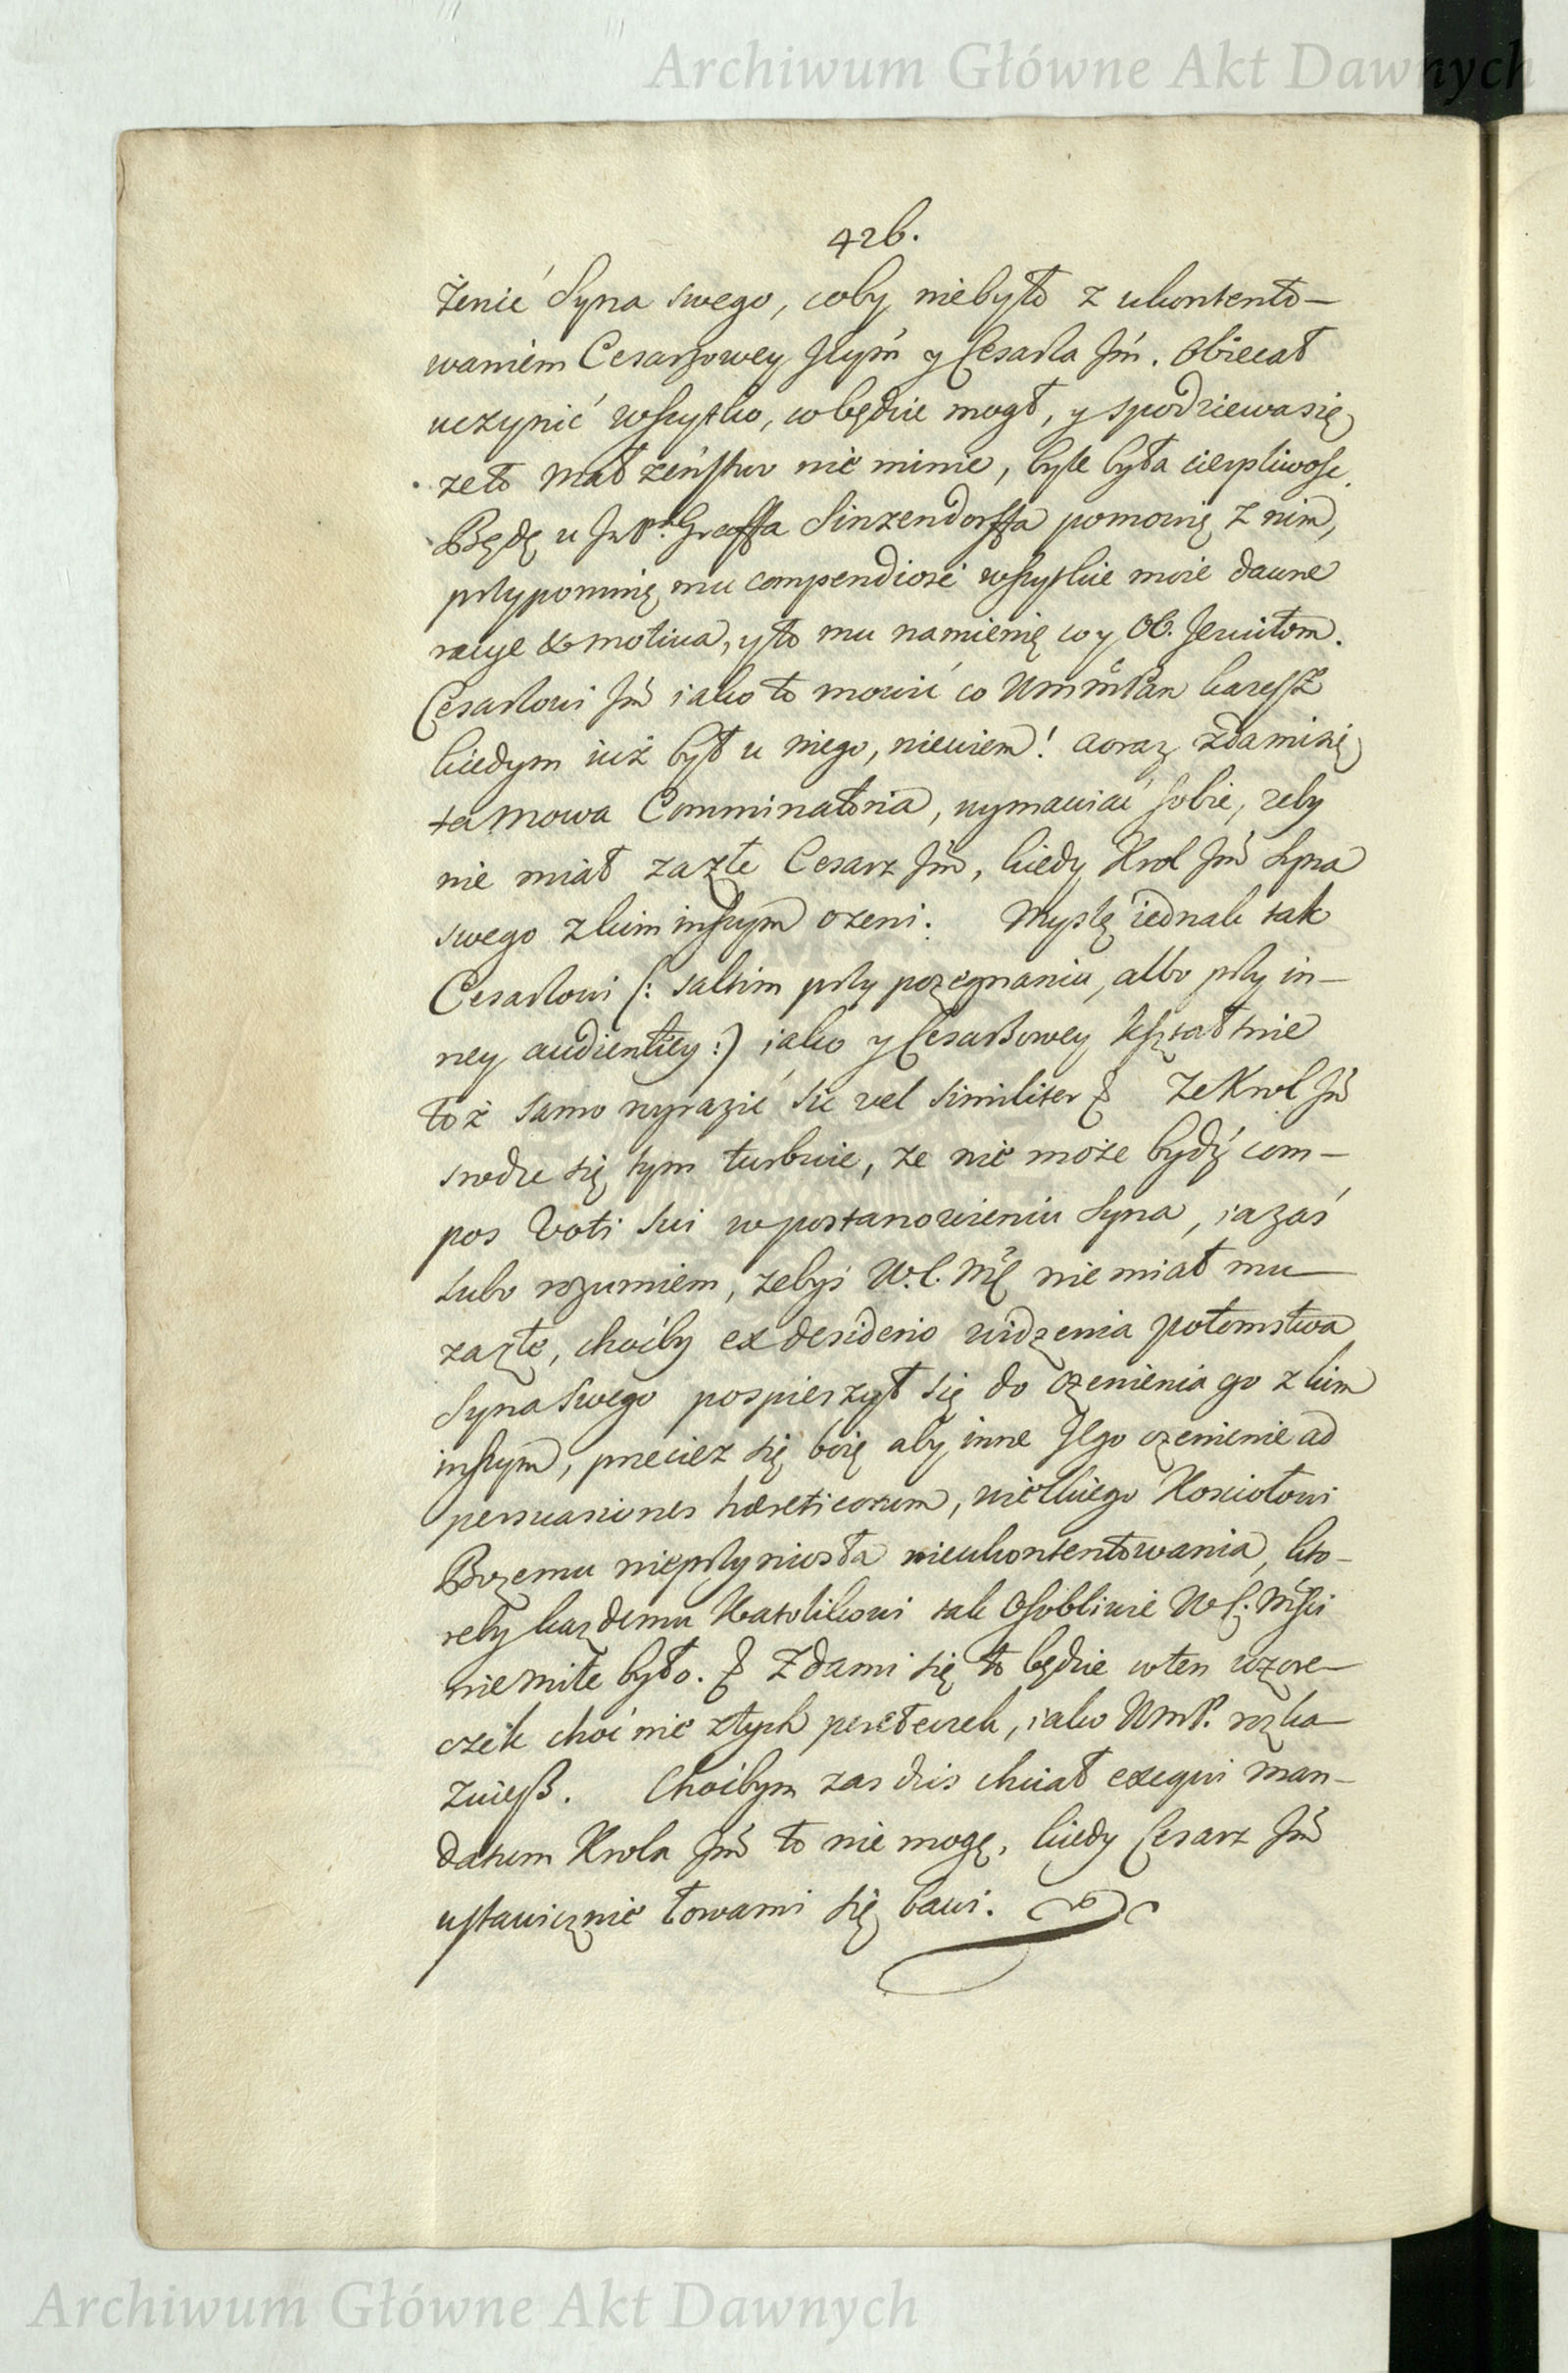 Archiwum Główne Akt Dawnych
426.
żenić Syna swego, coby niebyło z ukontento-
waniem Cesarzowey Jeym y Cesarza Jm. Obiecał
uczynić wszytko, co będzie mogł, y spodziewa się
że to małżeństwo nie minie, byle była cierpliwość.
Będę u Graffa Sinzendorffa pomowię z nim,
przypomnię mu compendiose wszytkie moie dawne
racye & motiva, y to mu namienię co y OO. Jezuitom.
Cesarzowi Jm iako to mowić co WmmPan każesz
kiedym iuż był u niego, niewiem! a oraz zda mi się
ta mowa Comminatoria, wymawiać sobie, żeby
nie miał za złe Cesarz Jm, kiedy Krol Jm Syna
swego z kim inszym ożeni. Myslę iednak tak
Cesarzowi (: saltim przy pożegnaniu, albo przy in-
ney audientiey :) iako y Cesarzowey kształtnie
toż samo wyrazić sic vel similiter Że Krol Jm
srodze się tym turbuie, że nie może bydź com-
pos Voti sui w postanowieniu Syna, ia zaś
lubo rozumiem, żebyś W.C.Mć nie miał mu
za złe, choćby ex desiderio widzenia potomstwa
Syna Swego pospieszył się do ożenienia go z kim
inszym, przeciez się boię aby inne Jego ożenienie ad
persuasiones haereticorum, wielkiego Kosciołowi
Bożemu nieprzyniosła nieukontentowania, kto-
reby każdemu Katolikowi tak Osobliwie W C. Mści
nie miłe było. Zda mi się to będzie w ten wzore-
czek choć nie złych perełeczek, iako WmP. rozka-
zuiesz. Choćbym zas dzis chciał exequi man-
datum Krola Jm to nie mogę, kiedy Cesarz Jm
ustawicznie łowami się bawi.
Archiwum Główne Akt Dawnych